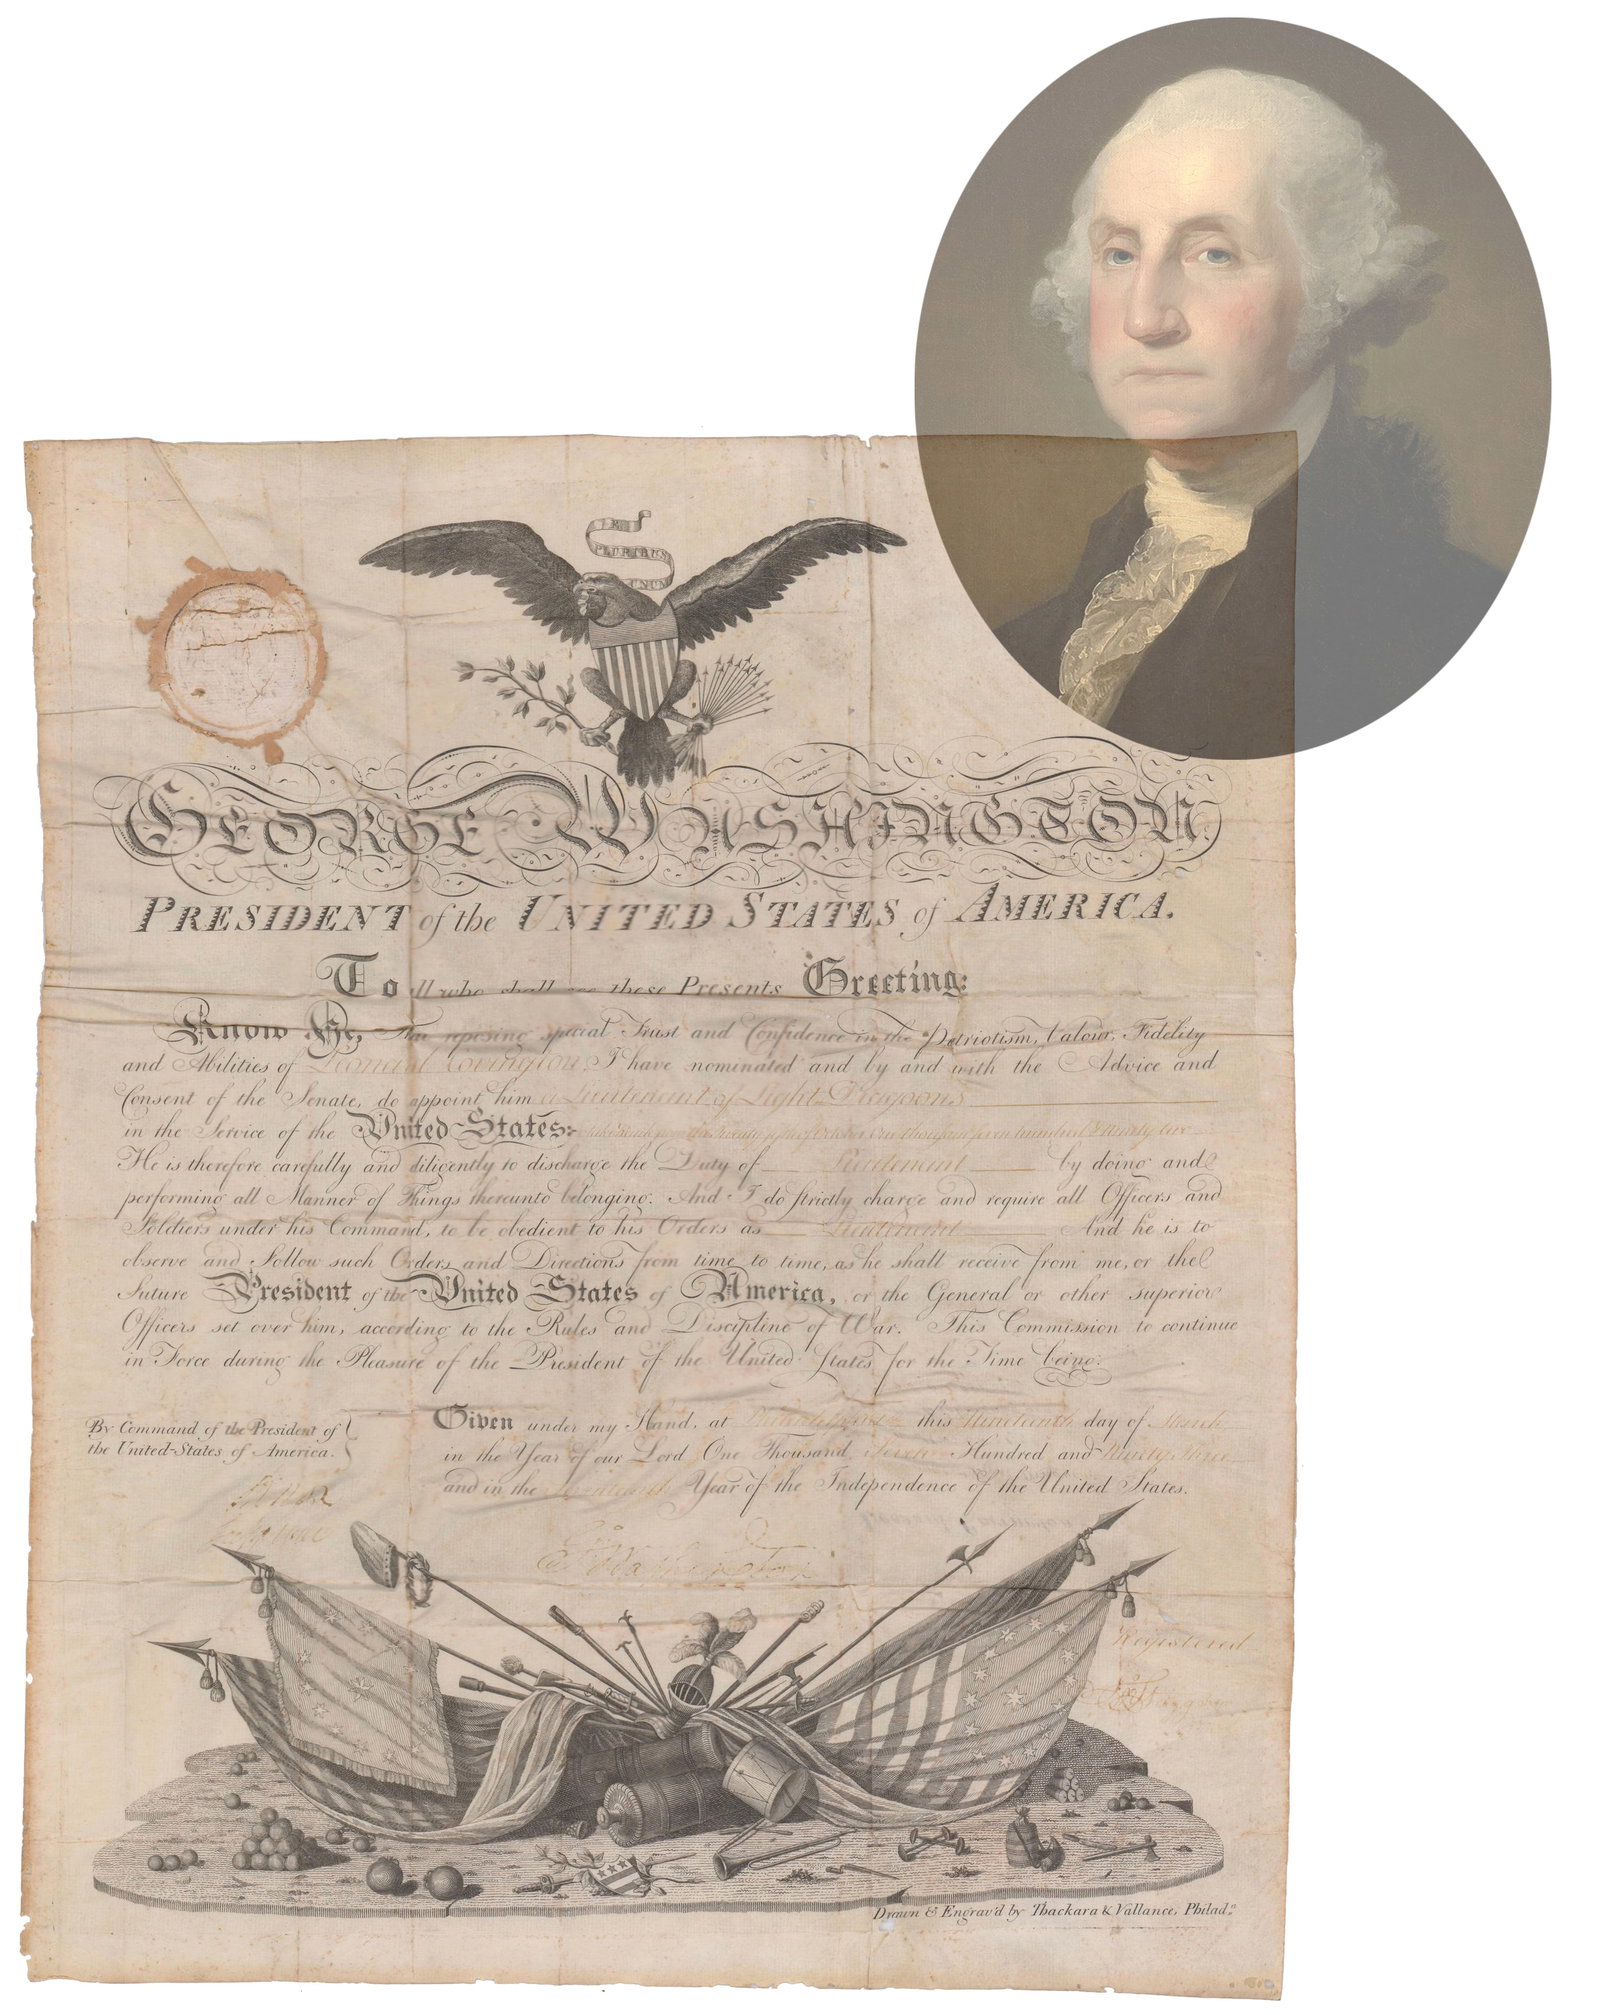 E
PLURIBUS
UNUM
GEORGE WASHINGTON,
PRESIDENT of the UNITED STATES of AMERICA.
To all who shall see these Presents Greeting:
Know Ye, That reposing special Trust and Confidence in the Patriotism, Valour, Fidelity
and Abilities of Leonard Covington, I have nominated and by and with the Advice and
Consent of the Senate, do appoint him a Lieutenant of Light Dragoons
in the Service of the United States: to take Rank from the twenty fifth of October One thousand seven hundred & ninety two
He is therefore carefully and diligently to discharge the Duty of Lieutenant by doing and
performing all Manner of Things thereunto belonging. And I do strictly charge and require all Officers and
Soldiers under his Command, to be obedient to his Orders as Lieutenant And he is to
observe and follow such Orders and Directions from time to time, as he shall receive from me, or the
future President of the United States of America, or the General or other superior
Officers set over him, according to the Rules and Discipline of War. This Commission to continue
in Force during the Pleasure of the President of the United States for the Time being.
Given under my Hand, at Philadelphia this Nineteenth day of March
in the Year of our Lord One Thousand Seven Hundred and Ninety three
and in the Seventeenth Year of the Independence of the United States.
By Command of the President of
the United-States of America.
HKnox
Go Washington
Registered
Drawn & Engrav'd by Thackara & Vallance, Philad.ª